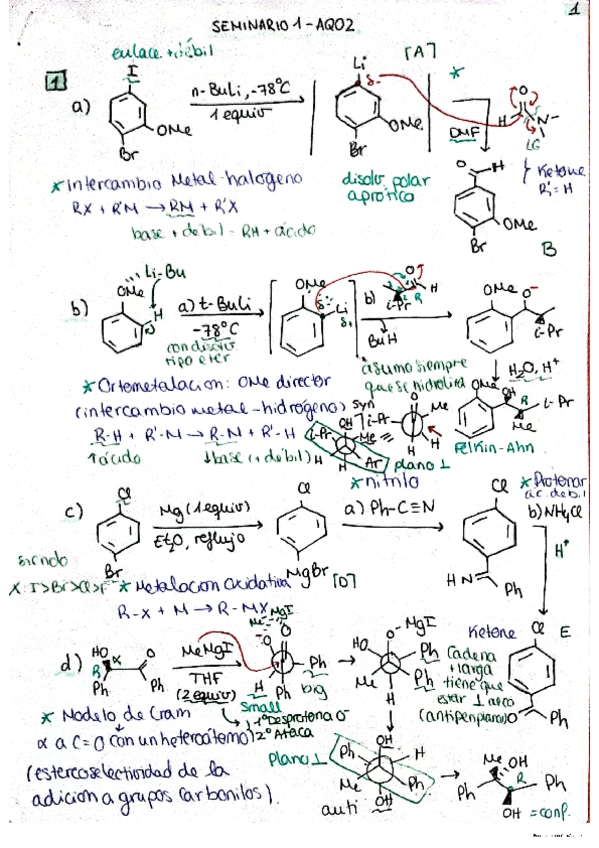 1
SEMINARIO 1 - AQO2
enlace + débil
[A]
1
a)
I
OMe
Br
n-BuLi, -78°C
1 equiv
Li
δ-
OMe
Br
*
DMF
O
H
N
LG
* Intercambio Metal-halogeno
RX + R'M → RM + R'X
base + debil = RH + ácido
disolv. polar
aprótico
O
H
OMe
Br
Ketone
R' = H
B
Li-Bu
b)
OMe
H
a) t-BuLi
-78°C
con disolv
tipo eter
OMe
Li
δ+
b)
i-Pr
O
H
R
BuH
OMe
O-
i-Pr
* Ortometalacion: OMe director
(intercambio metal-hidrógeno)
R-H + R'-M → R-M + R'-H
↑ácido
↓base (+ débil)
asumo siempre
que se hidroliza
H2O, H+
syn
OH
i-Pr
Me
H
H
Ar
≡
i-Pr
Me
H
H
plano ⊥
OMe
OH
R
i-Pr
Me
Felkin-Ahn
c)
Cl
Br
Mg (1 equiv)
Et2O, reflujo
Cl
MgBr
[D]
* nitrilo
a) Ph-C≡N
Cl
HN
Ph
* Protonar
ac. debil
b) NH4Cl
H+
siendo
X: I>Br>Cl>F
* Metalacion Oxidativa
R-X + M → R-MX
Ketone
Cl
E
O
Ph
d)
HO
R
α
O
Ph
Ph
MeMgI
THF
(2 equiv)
MgI
Me
-O
O
Ph
H
Ph
small
big
1º Desprotona O
2º Ataca
O-MgI
HO
Ph
Me
Ph
H
Cadena
+ larga
tiene que
estar
(antiperiplanar)
* Modelo de Cram
α a C=O con un heteroátomo
(estereoselectividad de la
adicion a grupos carbonilos).
Plano ⊥
OH
Ph
H
Me
Ph
OH
anti
Me
OH
R
Ph
Ph
OH
= conf.